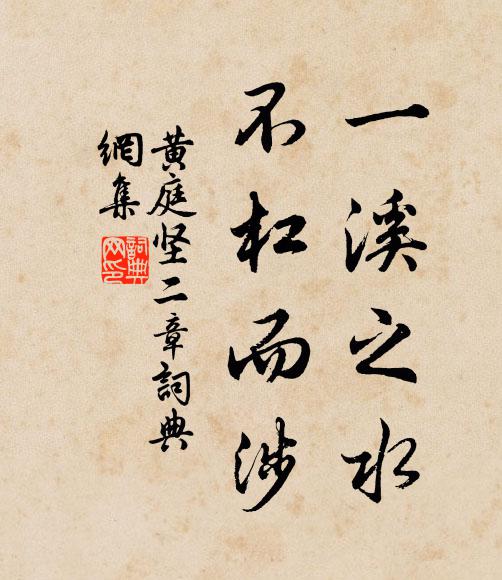 一溪之水
不杠而涉
黄庭坚二章詞典
網集
詞典
网印